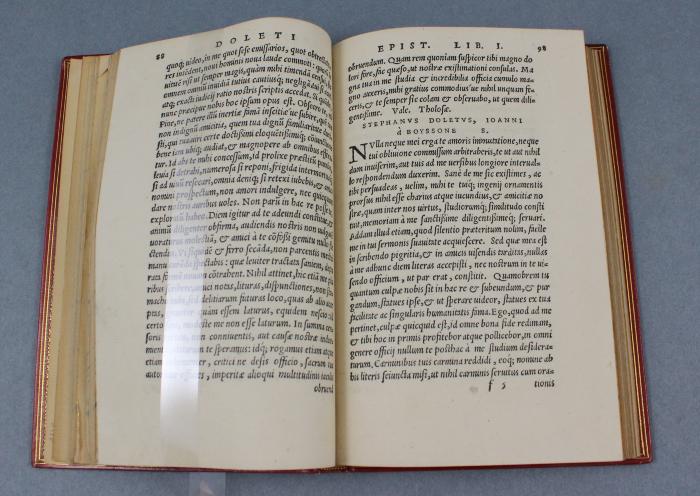 88
DOLETI
quoq; uideo, in me quot sese emissarios, quot obtrectato
res incedent, nouus hominis noua laude commoti: quo
magis, quàm mihi timenda censeo,
omnem omniũ inuidiã tutius cautiusq́; negligã
exacti iudicij ratio nostris scriptis accedat. Si quid
nunc præcipue nobis hoc ipsum opus est. Obsecro te,
Fine, ne parere imprimi fama inscitiæ ue subire, quàm
non indigna amicitia, quàm tua dignũ familiaritate
pti, qui tuauri certe doctissimi eloquentißimiq́;
bene iam ubiq; audiat, & magnopere ab omnibus
tur. Id abs te mihi concessum, id prolixe præstiti
detrabi, numerosa si reponi, frigida intermori,
si ad uiuũ resecari, omnia deniq; si retexi iubebis, &
hominis prospectum, non amori indulgere, nec quicquam
dare nostris auribus uoles. Non parũ in hac re
habeo. Diem igitur ad te adeundi constitue,
animũ diligenter obfirma, audiendis nostris non
uoratus molestiã, & amici à te cõfossi gemitu
ctendas. & ferro secãda, non parentis medici
manu spectabis: quæ leuiter tractata saniem,
rata contrahent. Nihil attinet, hic etiã me
notas, lituras, dispunctiones, non
sed delitiarum futuras loco, quas ab alio
quàm essem laturus, equidem
certo modeste me non esse laturum. In summa
non conniuentis, aut causæ nostræ
mentium te speramus: idq; rogamus etiam
menter, critici ne desis officio, sacrum
imperitæ alioqui multitudini
obruend
EPIST. LIB. I.
98
obruendum. Quam rem quoniam suspicor tibi magno do
lori fore, fac quæso, ut nostræ existimationi consulas. Ma
gna tua in me studia & incredibilia officia cumulo ma
gno auxeris, mihi gratius commodius ue nihil unquam fe
ceris, & te semper sic colam & obseruabo, ut quem dili
gentißime. Vale. Tholosæ.
STEPHANVS DOLETVS, IOANNI
à BOYSSONE S.
NVlla neque mei erga te amoris immutatione, neque
tui obliuione commissum arbitraberis, te ut aut nihil
dum inuiserim, aut tuis ad me uersibus longiore interual
lo respondendum duxerim. Sanè de me sic existimes, ac
tibi persuadeas, uelim, mihi te tuiq; ingenij ornamentis
prorsus nihil esse charius atque iucundius, & amicitiæ no
stræ, quam inter nos uirtus, studiorumq; similitudo consti
tuit, memoriam à me sanctißime diligentißimeq́; seruari.
Addam illud etiam, quod silentio præteritum nolim, facile
me in tui sermonis suauitate acquiescere. Sed quæ mea est
in scribendo pigritia, & in amicis uisendis tarditas, nullas
à me adhunc diem literas accepisti, nec nostrum in te ui-
sendo officium, ut par erat, constitit. Quamobrem tu
quantum culpæ nobis sit in hac re & subeundum, & pur
gandum, statues ipse, & ut sperare uideor, statues ex tua
facilitate ac singularis humanitatis fama. Ego, quod ad me
pertinet, culpæ quicquid est, id omne bona fide redimam,
& tibi hoc in primis profitebor atque pollicebor, in omni
genere officij nullum te posthac à me studium desidera-
turum. Carminibus tuis carmina reddidi, eoq; nomine ab
his literis seiuncta misi, ut nihil carminis seruitus cum ora-
f 5 tionis